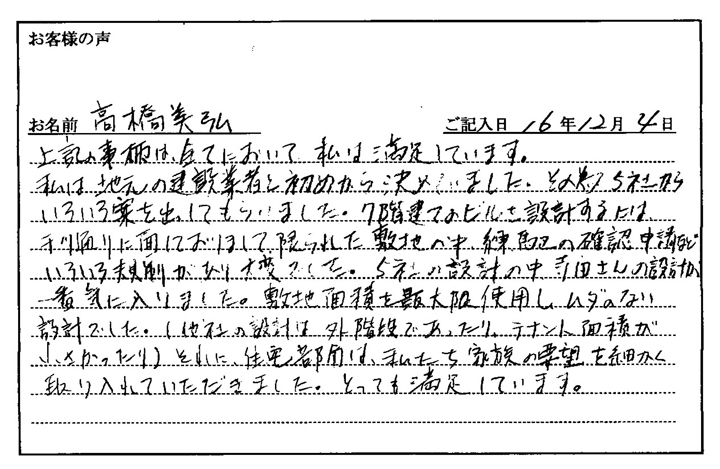 お客様の声
お名前 高橋美弘 ご記入日 16年12月4日
上記の事柄は、点てにおいて 私は満足しています。
私は地元の建設業者と初めから決めていました。その為5社から
いろいろ案を出してもらいました。7階建てのビルを設計するには
通りに面しておりまして 限られた敷地の中、練馬区の確認申請など
いろいろ規制があり大変でした。5社の設計の中 寺田さんの設計が
一番気に入りました。敷地面積を最大限使用し、ムダのない
設計でした。(他社の設計は 外階段であったり、テナント面積が
小さかったり)それに、住宅部分は、私たち家族の要望を細かく
取り入れていただきました。とっても満足しています。